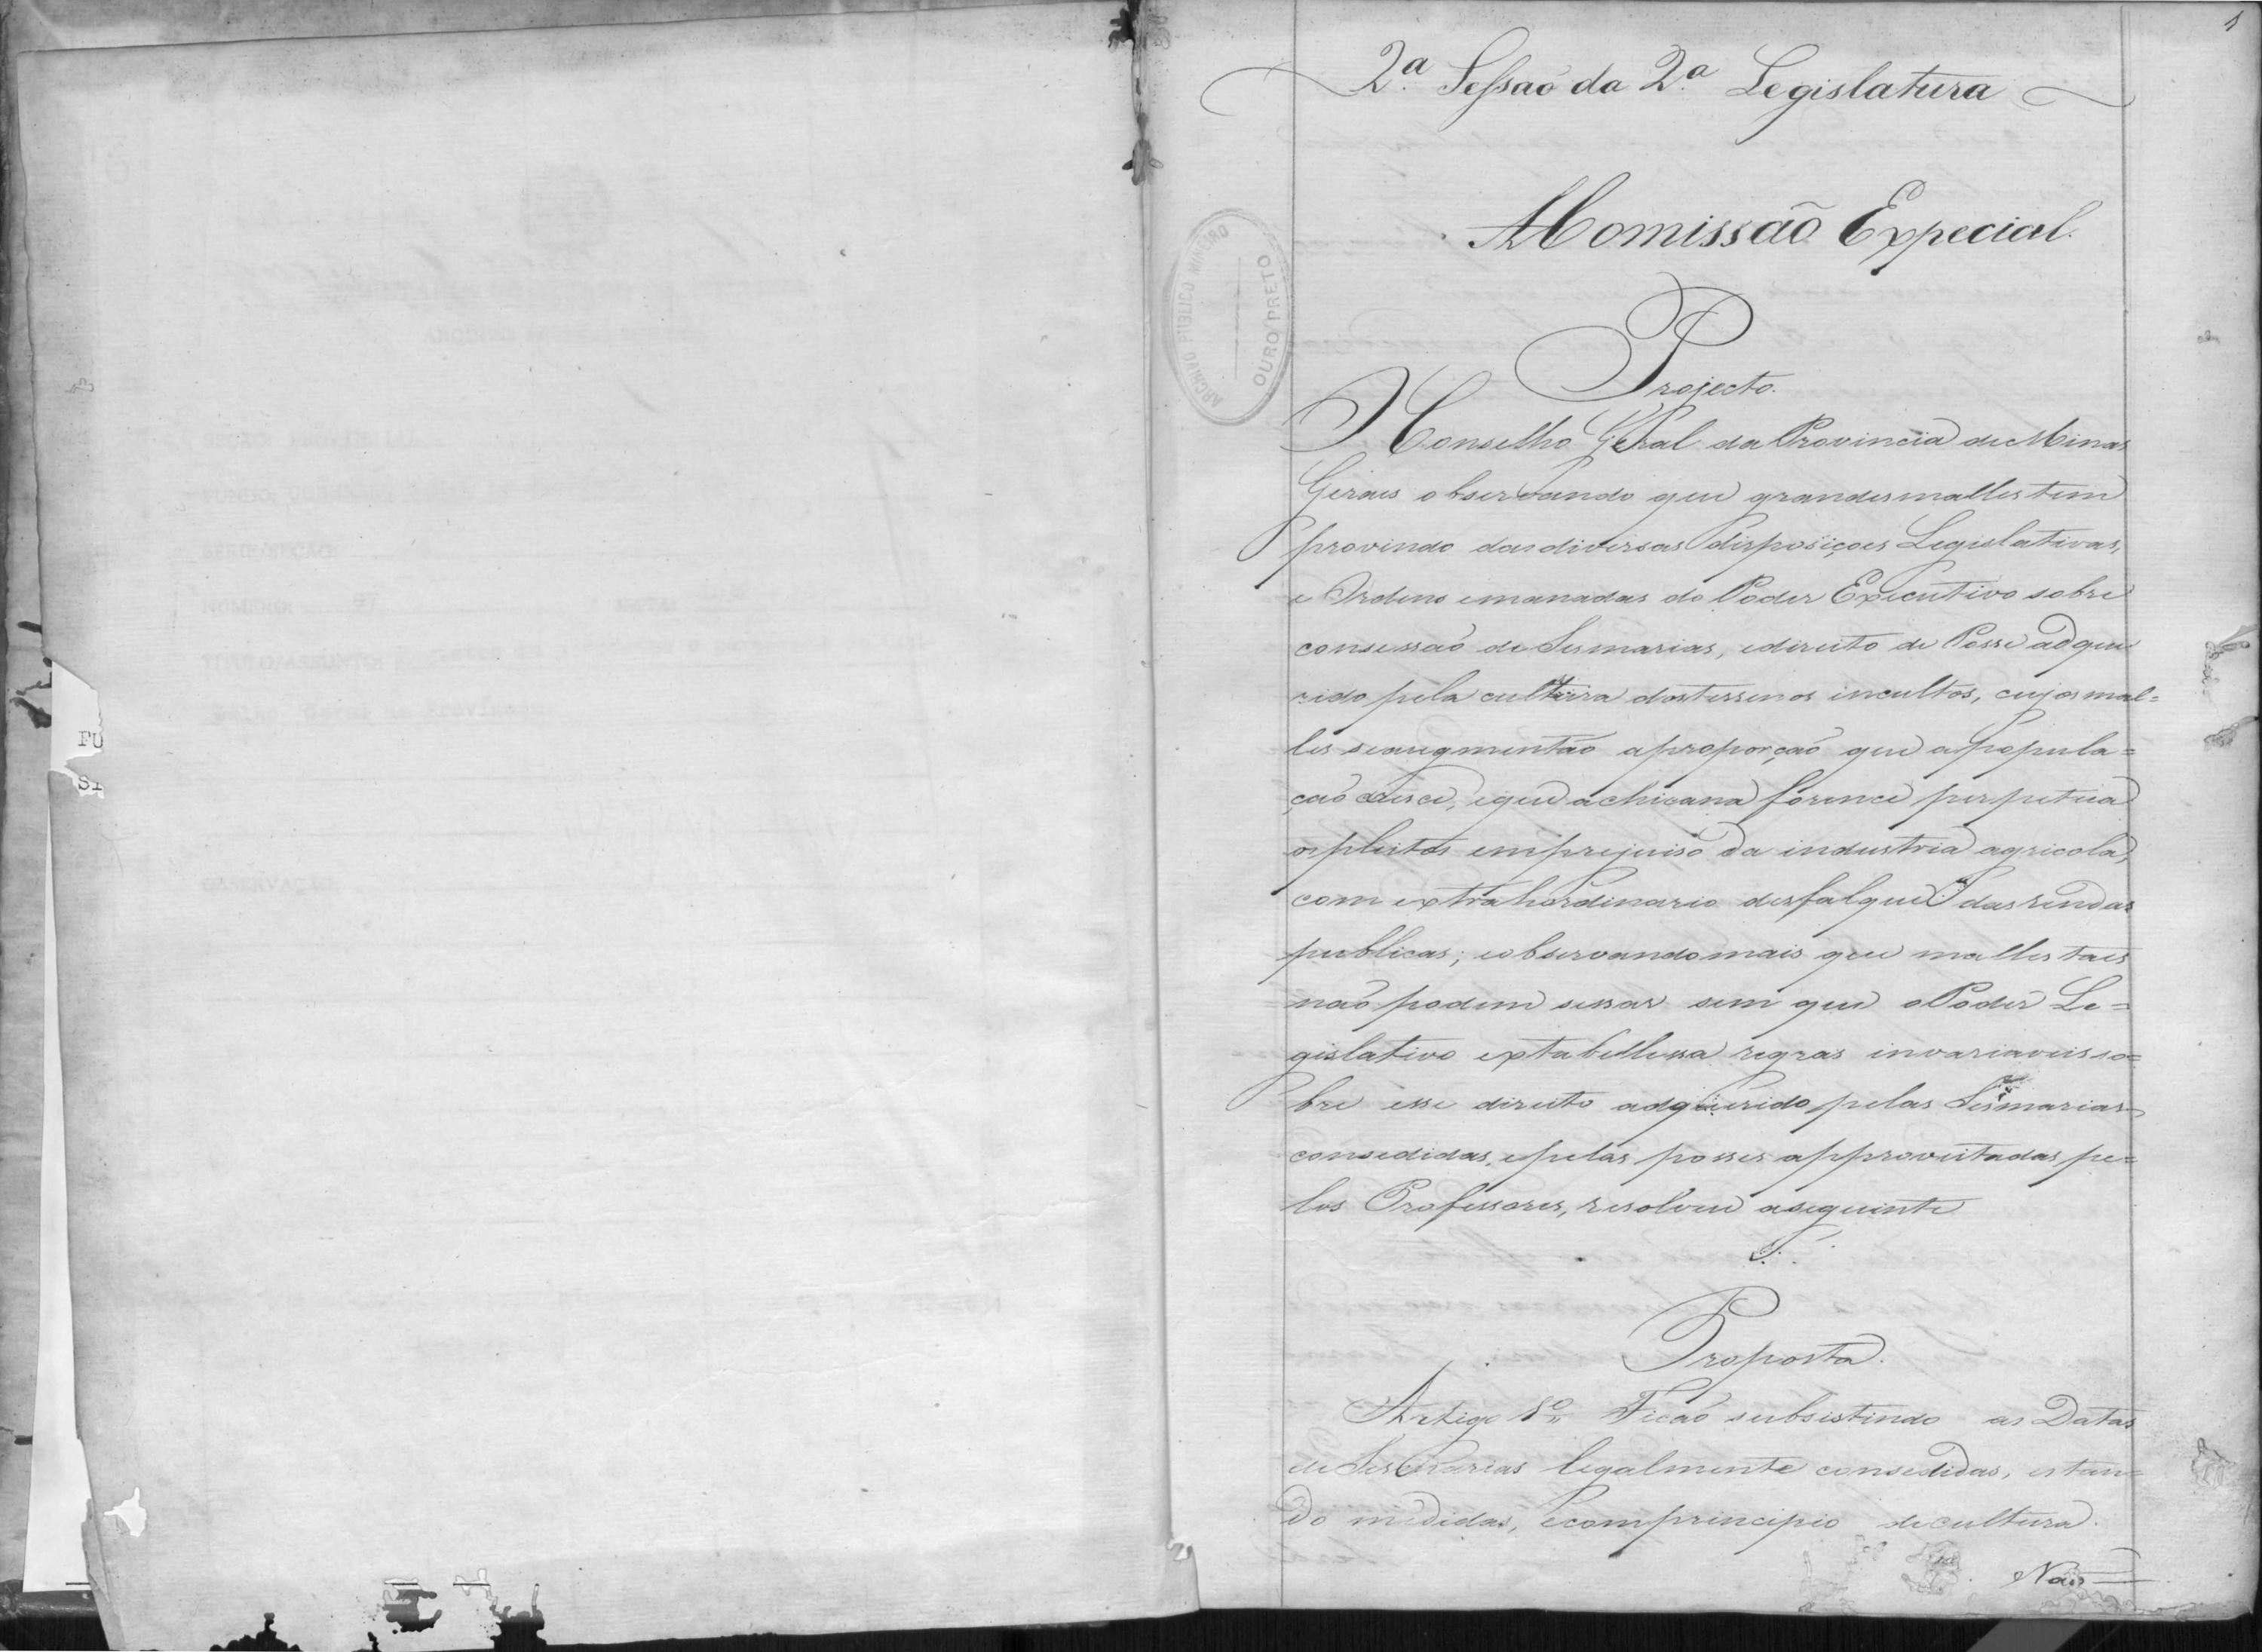 1
2ª Sessaõ da 2ª Legislatura
A Comissaõ Expecial.
ARCHIVO PUBLICO MINEIRO
OURO PRETO
Projecto.
O Conselho Geral da Provincia de Minas
Geraes observando que grandes malles tem
provindo das diversas disposiçoes Legislativas,
e Ordens emanadas do Poder Executivo sobre
consessaõ de Sesmarias, e direito de Posse adque
rido pela cultura dos terrenos incultos, cujos mal=
les se augmentaõ a proporçaõ que a popula=
çaõ cresce, e que a chicana forence perpetua
os pleitos em prejuiso da industria agricola,
com extrahordinario desfalque das rendas
publicas; e observando mais que malles taes
naõ podem sessar sem que o Poder Le=
gislativo extabellessa regras invariaveis so=
bre esse direito adquerido pelas Sesmarias
consedidas, e pelas posses approveitadas pe=
los Professores, resolveu a seguinte
Proposta.
Artigo 1º Ficaõ subsistindo as Datas
de Sesmarias legalmente consedidas, estan=
do medidas, e com principio de cultura.
Naõ
FU